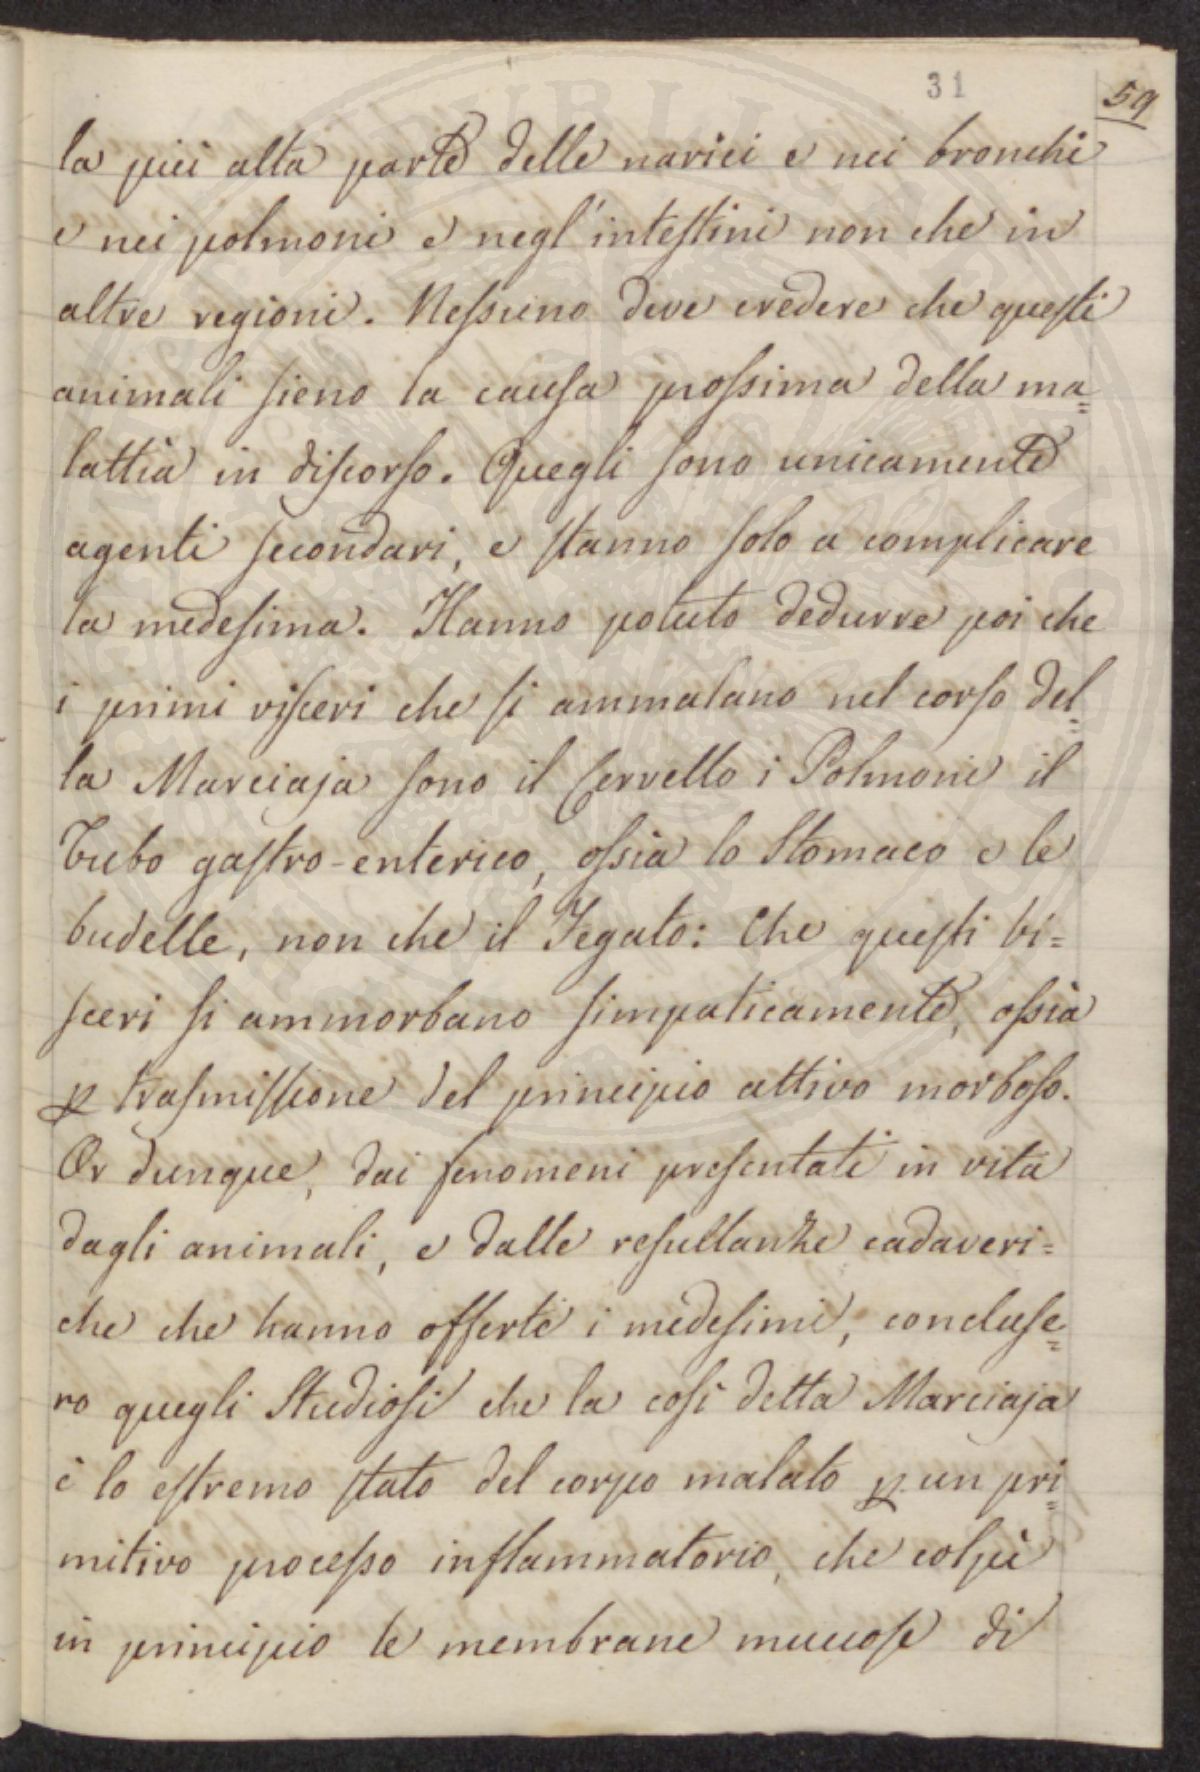 31
59
la più alta parte delle narici e nei bronchi
e nei polmoni e negl'intestini non che in
altre regioni. Nessuno deve credere che questi
animali sieno la causa prossima della ma=
lattia in discorso. Quegli sono unicamente
agenti secondari, e stanno solo a complicare
la medesima. Hanno potuto dedurre poi che
i primi visceri che si ammalano nel corso del=
la Marciaja sono il Cervello i Polmoni il
Tubo gastro-enterico, ossia lo Stomaco e le
budelle, non che il Fegato: Che questi vi=
sceri si ammorbano simpaticamente, ossia
p trasmissione del principio attivo morboso.
Or dunque, dai fenomeni presentati in vita
dagli animali, e dalle resultanze cadaveri=
che che hanno offerte i medesimi, concluse=
ro quegli Studiosi che la così detta Marciaja
è lo estremo stato del corpo malato p. un pri=
mitivo processo inflammatorio, che colpì
in principio le membrane muccose di